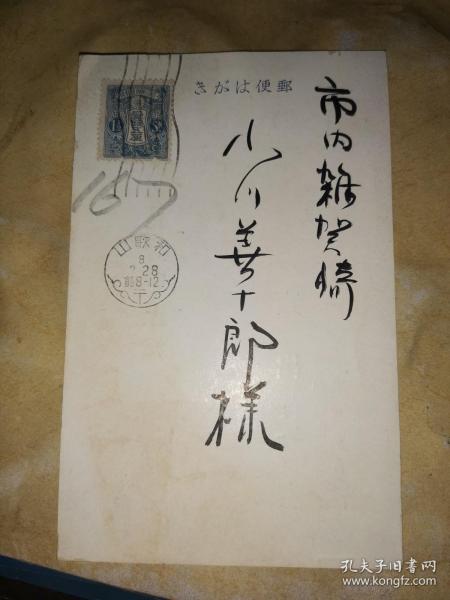 郵便はがき
市内雑賀崎
小川善十郎様
和歌山
8
28
前8-12
孔夫子旧书网
www.kongfz.com